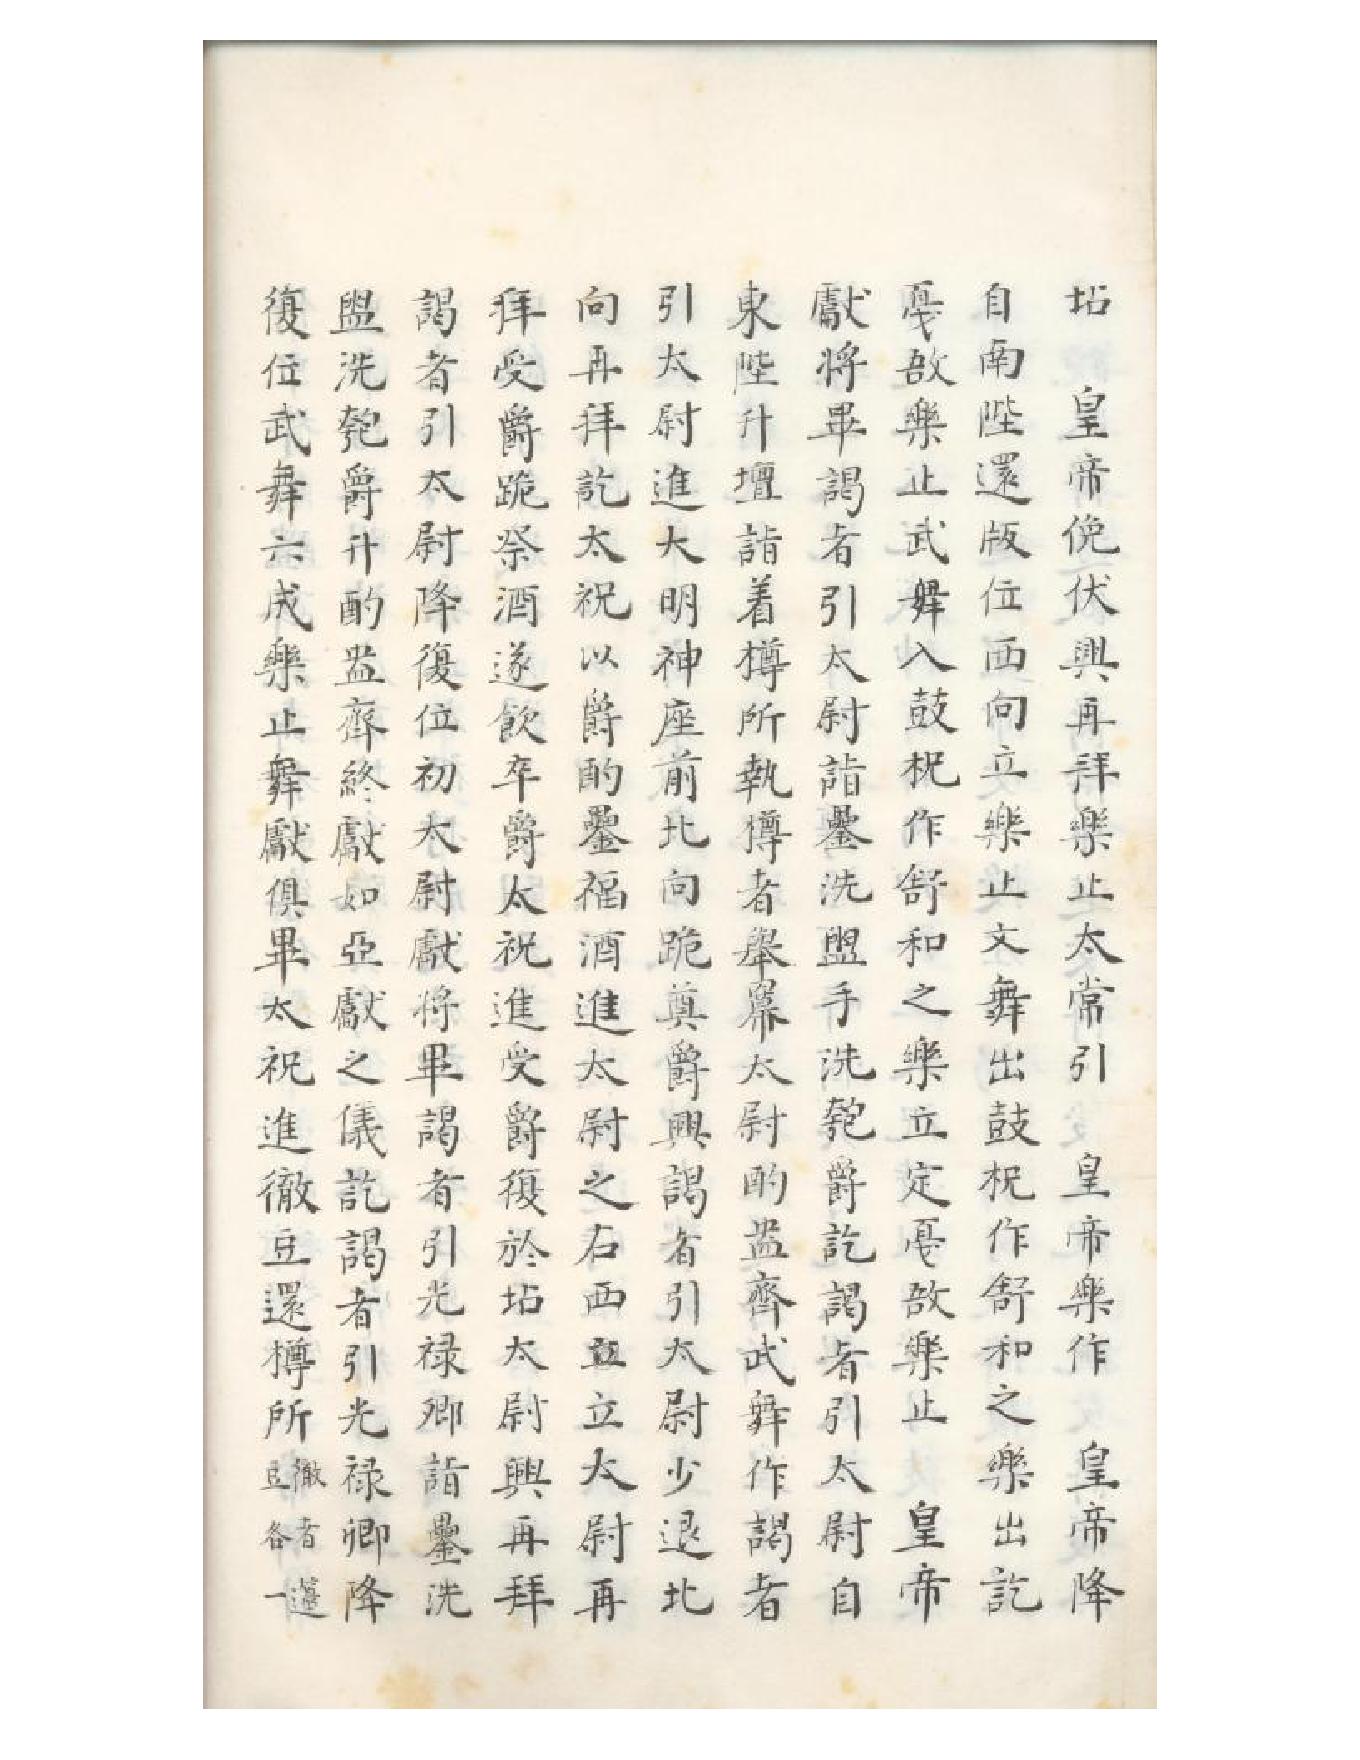 坫　皇帝俛伏興再拜樂止太常引　皇帝樂作　皇帝降
自南陛還版位西向立樂止文舞出鼓柷作舒和之樂出訖
戛敔樂止武舞入鼓柷作舒和之樂立定戛敔樂止　皇帝
獻將畢謁者引太尉詣罍洗盥手洗匏爵訖謁者引太尉自
東陛升壇詣着樽所執樽者舉冪太尉酌盎齊武舞作謁者
引太尉進大明神座前北向跪奠爵興謁者引太尉少退北
向再拜訖太祝以爵酌罍福酒進太尉之右西立太尉再
拜受爵跪祭酒遂飮卒爵太祝進受爵復於坫太尉興再拜
謁者引太尉降復位初太尉獻將畢謁者引光禄卿詣罍洗
盥洗匏爵升酌盎齊終獻如亞獻之儀訖謁者引光禄卿降
復位武舞六成樂止舞獻俱畢太祝進徹豆還樽所徹者籩豆各一